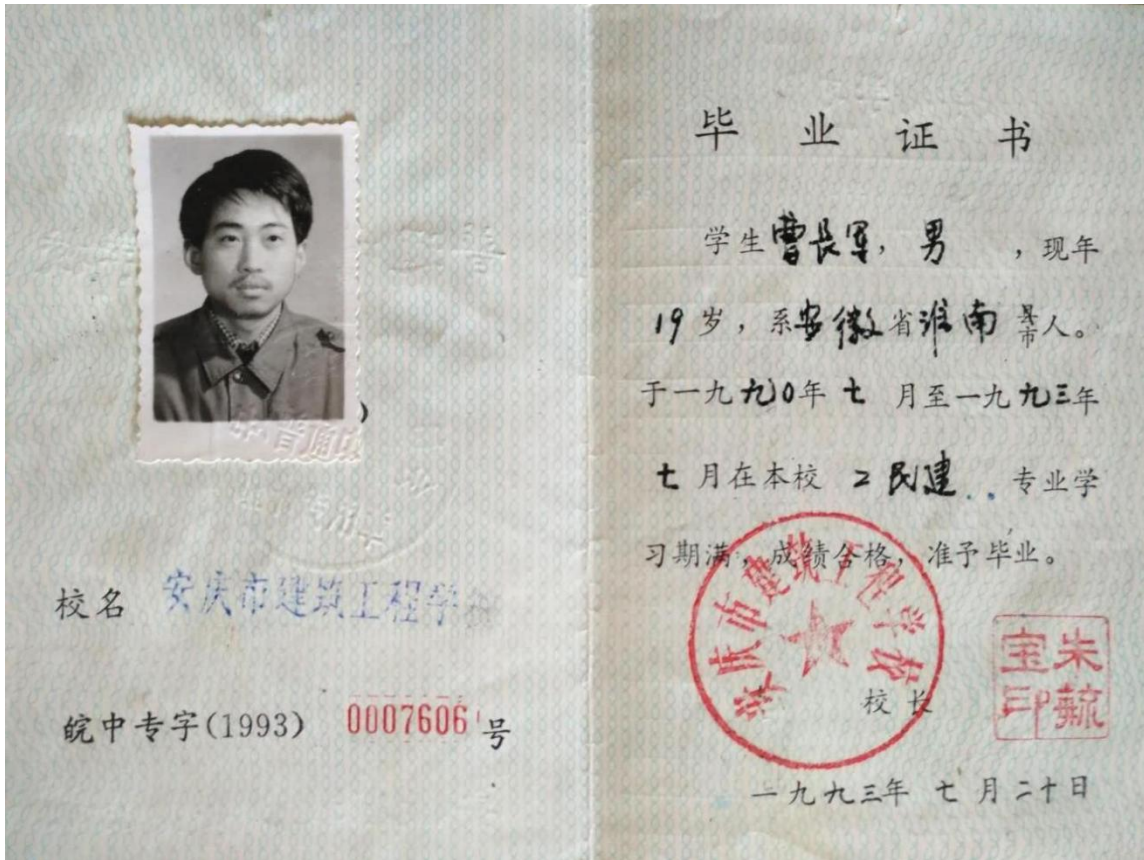 校名 安庆市建筑工程学校
皖中专字(1993) 0007606 号
毕业证书
学生曹长军,男 ,现年
19岁,系安徽省淮南县市人。
于一九九0年七月至一九九三年
七月在本校 工民建 专业学
习期满,成绩合格,准予毕业。
安庆市建筑工程学校
校长
朱毓宝印
一九九三年 七月二十日